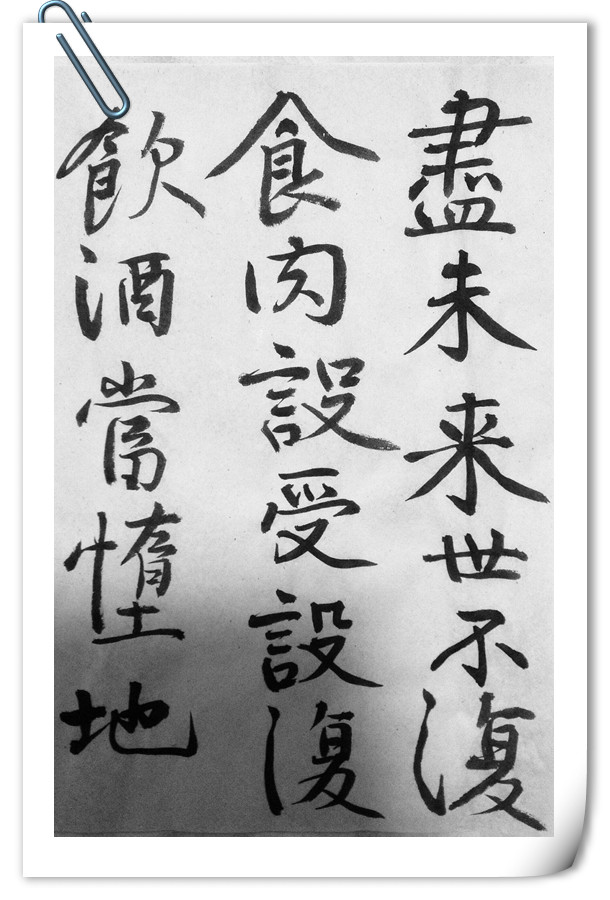 盡未来世不復
食肉設受設復
飲酒當墮地